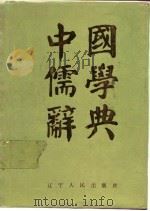 中國
儒學
辭典
辽宁人民出版社